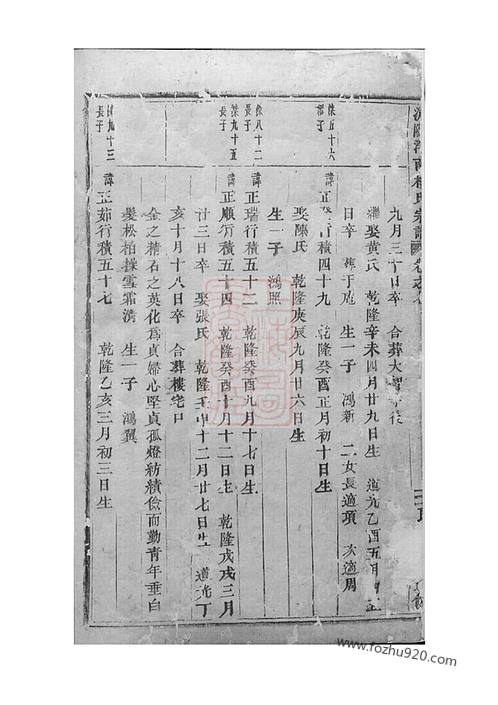 氏宗譜
九月三十日卒 合葬大
娶黄氏 乾隆辛未四月廿九日生 道光乙酉五月
日卒 葬于 生一子 鴻新 二女長適項 次適周
係五十六
子
諱正 行積四十九 乾隆癸酉正月初十日生
娶陳氏 乾隆庚辰九月廿六日生
生一子 鴻照
係八十二
長子
諱正瑞行積五十二 乾隆癸酉九月十七日生
係九十五
長子
諱正順行積五十四 乾隆癸酉十月十二日生 乾隆戊戌三月
廿三日卒 娶張氏 乾隆壬申十二月廿七日生 道光丁
亥十月十八日卒 合葬樓宅口
金之精石之英化為貞婦心堅貞孤燈紡績儉而勤青年垂白
髮松柏操雪霜清 生一子 鴻翼
九十三
長子
諱正茹行積五十七 乾隆乙亥三月初三日生
www.fozhu920.com